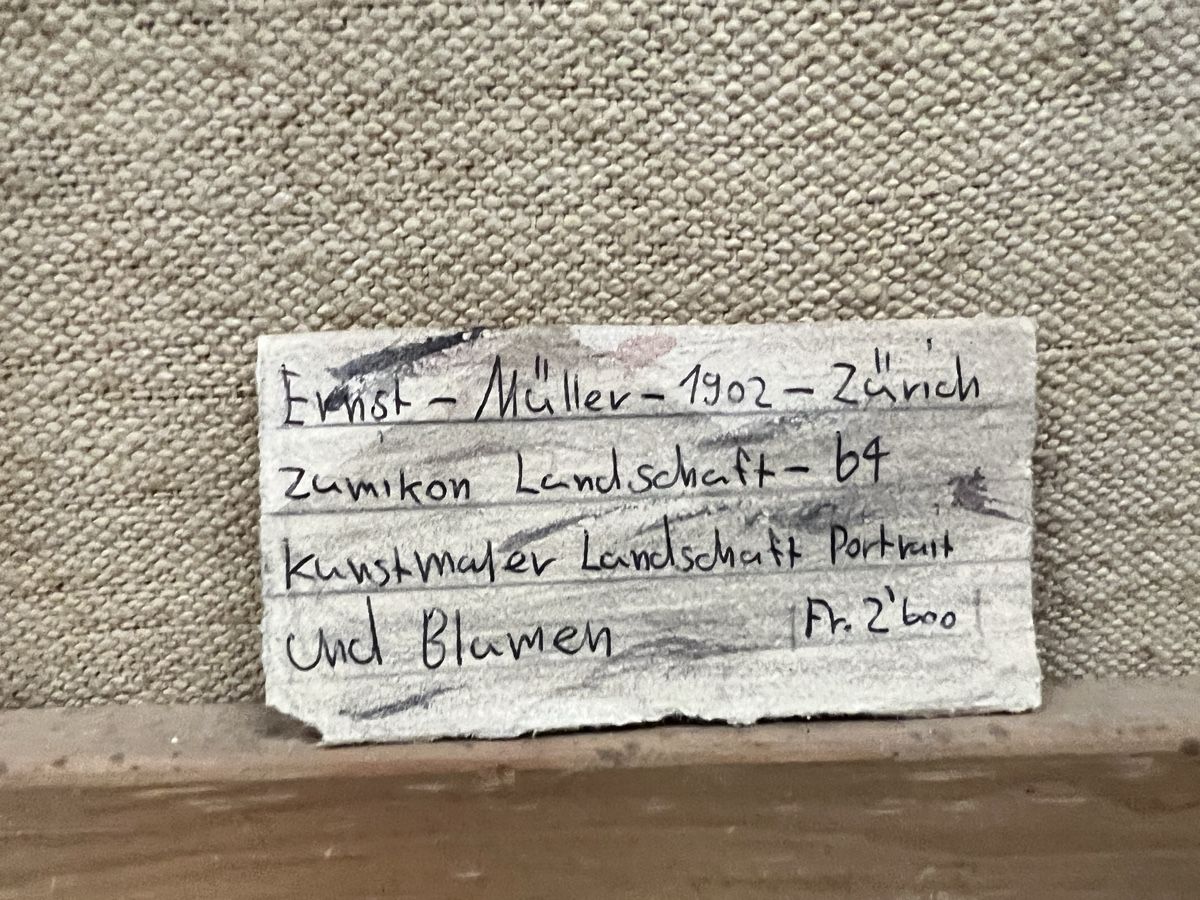 Ernst - Müller - 1902 - Zürich
Zumikon Landschaft - 64
Kunstmaler Landschaft Portrait
und Blumen Fr. 2'600